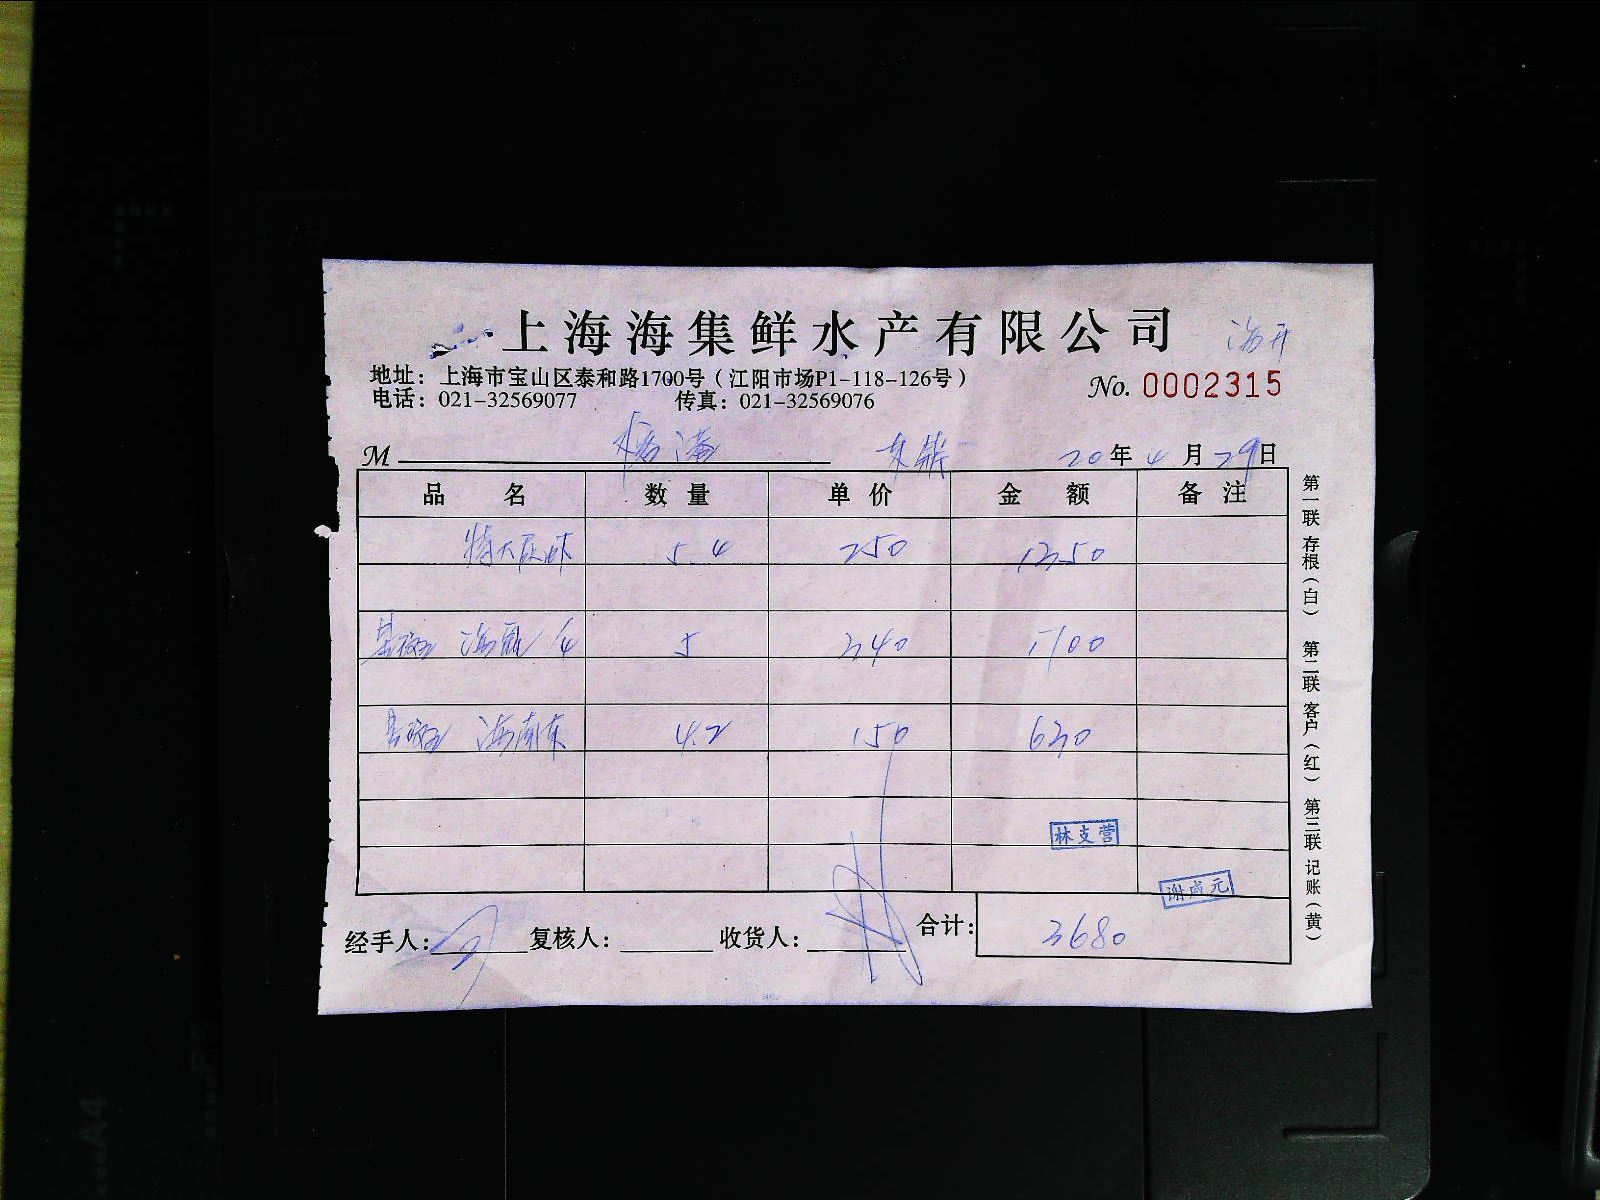 上海海集鲜水产有限公司
地址：上海市宝山区泰和路1700号（江阳市场P1-118-126号）
No. 0002315
电话：021-32569077 传真：021-32569076
M 20年4月29日
品名 数量 单价 金额 备注
特大 5.4 250 1350
5 340 1700
4.2 150 630
林支营
谢成元
经手人： 复核人： 收货人： 合计： 3680
第一联 存根（白） 第二联 客户（红） 第三联 记账（黄）
A4